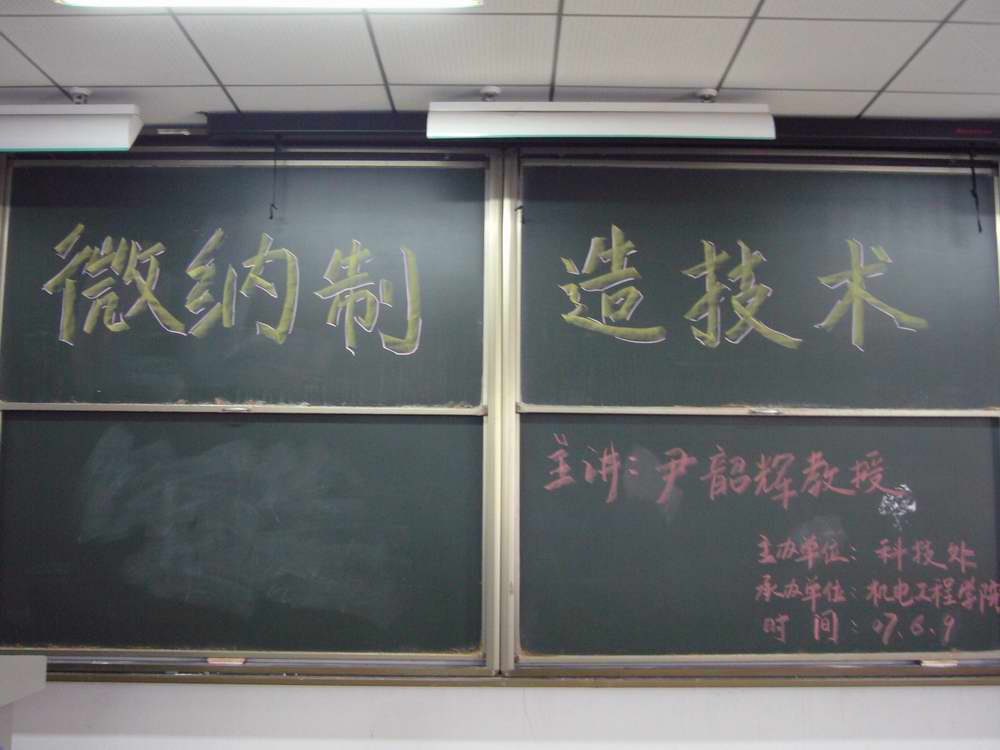 微纳制造技术
主讲:尹韶辉教授
主办单位:科技处
承办单位:机电工程学院
时 间:07.6.9